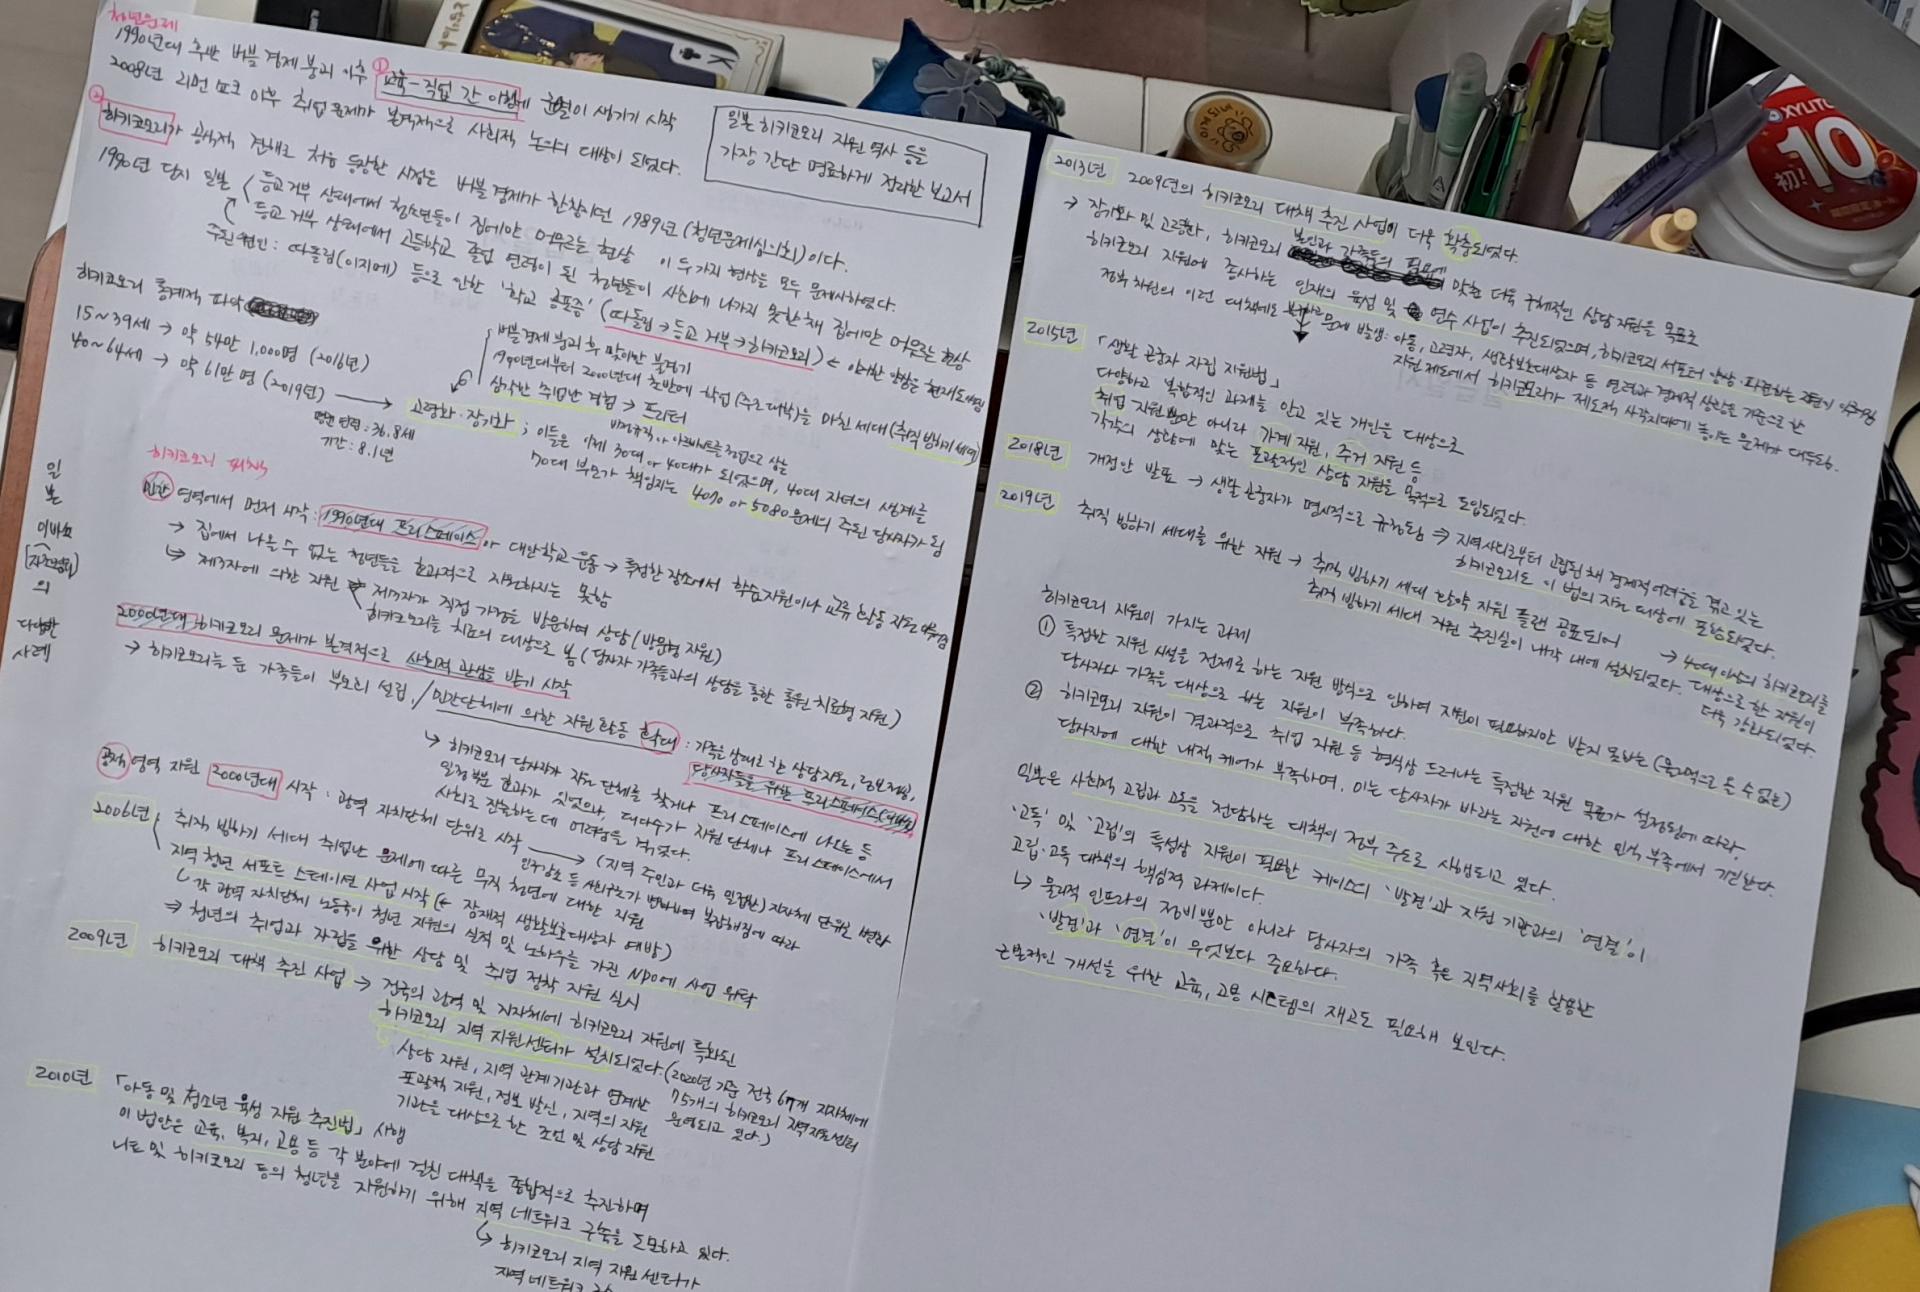 청년문제
1990년대 후반 버블 경제 붕괴 이후 ① 교육-직업 간 이행에 균열이 생기기 시작
2008년 리먼 쇼크 이후 취업 문제가 본격적으로 사회적 논의의 대상이 되었다.
일본 히키코모리 지원 역사 등을
가장 간단 명료하게 정리한 보고서
② 히키코모리가 공식적 견해로 처음 등장한 시점은 버블 경제가 한창이던 1989년 (청년문제심의회)이다.
1990년 당시 일본
등교 거부 상태에서 청소년들이 집에만 머무르는 현상
이 두가지 현상을 모두 문제시하였다.
등교 거부 상태에서 고등학교 졸업 연령이 된 청년들이 사회에 나가지 못한 채 집에만 머무르는 현상
주된 원인: 따돌림(이지메) 등으로 인한 '학교 공포증' (따돌림→등교 거부→히키코모리) ← 이러한 양상은 현재도
히키코모리 통계적 파악
15~39세 → 약 54만 1,000명 (2016년)
40~64세 → 약 61만 명 (2019년) → 고령화·장기화
평균 연령: 36.8세
기간: 8.1년
버블 경제 붕괴 후 맞이한 불경기
1990년대부터 2000년대 초반에 학업(주로 대학)을 마친 세대 (취직 빙하기 세대)
심각한 취업난 경험 → 프리터
비정규직 or 아르바이트를 직업으로 삼는
; 이들은 이제 30대 or 40대가 되었으며, 40대 자녀의 생계를
70대 부모가 책임지는 4070 or 5080 문제의 주된 당사자가 됨
일본
이바쇼
의
다양한
사례
히키코모리 정책
민간 영역에서 먼저 시작: 1990년대 프리스페이스 or 대안학교 운동 → 특정한 장소에서 학습지원이나 교류 활동 지원
→ 집에서 나올 수 없는 청년들을 효과적으로 지원하지는 못함
↳ 제3자에 의한 지원
제3자가 직접 가정을 방문하여 상담 (방문형 지원)
히키코모리를 치료의 대상으로 봄 (당사자 가족들과의 상담을 통한 통원·치료형 지원)
2000년대 히키코모리 문제가 본격적으로 사회적 관심을 받기 시작
→ 히키코모리를 둔 가족들이 부모회 설립 / 민간단체에 의한 지원 활동 확대 : 가족을 상대로 한 상담지원, 정보제공,
당사자들을 위한 프리스페이스(이바쇼)
↳ 히키코모리 당사자가 지원 단체를 찾거나 프리스페이스에 나오는 등
일정 부분 효과가 있었으나, 대다수가 지원 단체나 프리스페이스에서
사회로 진출하는데 어려움을 겪었다.
공적 영역 지원 2000년대 시작 : 광역 자치단체 단위로 시작 → (지역 주민과 더욱 밀접한) 지자체 단위로 변화
인구감소 등 사회구조가 변화하며 복잡해짐에 따라
2006년
취직 빙하기 세대 취업난 문제에 따른 무직 청년에 대한 지원
지역 청년 서포트 스테이션 사업 시작 (← 잠재적 생활보호대상자 예방)
↳ 각 광역 자치단체 노동국이 청년 지원의 실적 및 노하우를 가진 NPO에 사업 위탁
⇒ 청년의 취업과 자립을 위한 상담 및 취업 정착 지원 실시
2009년 히키코모리 대책 추진 사업 → 전국의 광역 및 지자체에 히키코모리 지원에 특화된
히키코모리 지역 지원센터가 설치되었다. (2020년 기준 전국 67개 지자체에
75개의 히키코모리 지역지원센터
운영되고 있다.)
상담 지원, 지역 관계기관과 연계한
포괄적 지원, 정보 발신, 지역의 지원
기관을 대상으로 한 조언 및 상담 지원
2010년 「아동 및 청소년 육성 지원 추진법」 시행
이 법안은 교육, 복지, 고용 등 각 분야에 걸친 대책을 종합적으로 추진하며
니트 및 히키코모리 등의 청년을 지원하기 위해 지역 네트워크 구축을 도모하고 있다.
↳ 히키코모리 지역 지원 센터가
지역 네트워크
2013년 2009년의 히키코모리 대책 추진 사업이 더욱 확충되었다.
→ 장기화 및 고령화, 히키코모리 본인과 가족들의 필요에 맞춘 더욱 구체적인 상담 지원을 목표로
히키코모리 지원에 종사하는 인재의 육성 및 연수 사업이 추진되었으며, 히키코모리 서포터 양성·파견하는 지원이 이루어짐
정부 차원의 이런 대책에도 불구하고 문제 발생: 아동, 고령자, 생활보호대상자 등 연령과 경제적 상황을 기준으로 한
지원 제도에서 히키코모리가 제도적 사각지대에 놓이는 문제가 대두됨.
2015년 「생활 곤궁자 자립 지원법」
다양하고 복합적인 과제를 안고 있는 개인을 대상으로
취업 지원뿐만 아니라 가계 지원, 주거 지원 등
각각의 상황에 맞는 포괄적인 상담 지원을 목적으로 도입되었다.
2018년 개정안 발표 → 생활 곤궁자가 명시적으로 규정됨 ⇒ 지역사회로부터 고립된 채 경제적 어려움을 겪고 있는
히키코모리도 이 법의 지원 대상에 포함되었다.
2019년 취직 빙하기 세대를 위한 지원 → 취직 빙하기 세대 활약 지원 플랜 공표되어
취직 빙하기 세대 지원 추진실이 내각 내에 설치되었다.
→ 40대 이상의 히키코모리를
대상으로 한 지원이
더욱 강화되었다.
히키코모리 지원이 가지는 과제
① 특정한 지원 시설을 전제로 하는 지원 방식으로 인하여 지원이 필요하지만 받지 못하는 (물리적으로 올 수 없는)
당사자와 가족을 대상으로 하는 지원이 부족하다.
② 히키코모리 지원이 결과적으로 취업 지원 등 형식상 드러나는 특정한 지원 목표가 설정됨에 따라,
당사자에 대한 내적 케어가 부족하며, 이는 당사자가 바라는 지원에 대한 인식 부족에서 기인한다.
일본은 사회적 고립과 고독을 전담하는 대책이 정부 주도로 시행되고 있다.
'고독' 및 '고립'의 특성상 지원이 필요한 케이스의 '발견'과 지원 기관과의 '연결'이
고립·고독 대책의 핵심적 과제이다.
↳ 물리적 인프라의 정비뿐만 아니라 당사자의 가족 혹은 지역사회를 활용한
'발견'과 '연결'이 무엇보다 중요하다.
근본적인 개선을 위한 교육, 고용 시스템의 재고도 필요해 보인다.
XYLITO
10
初!